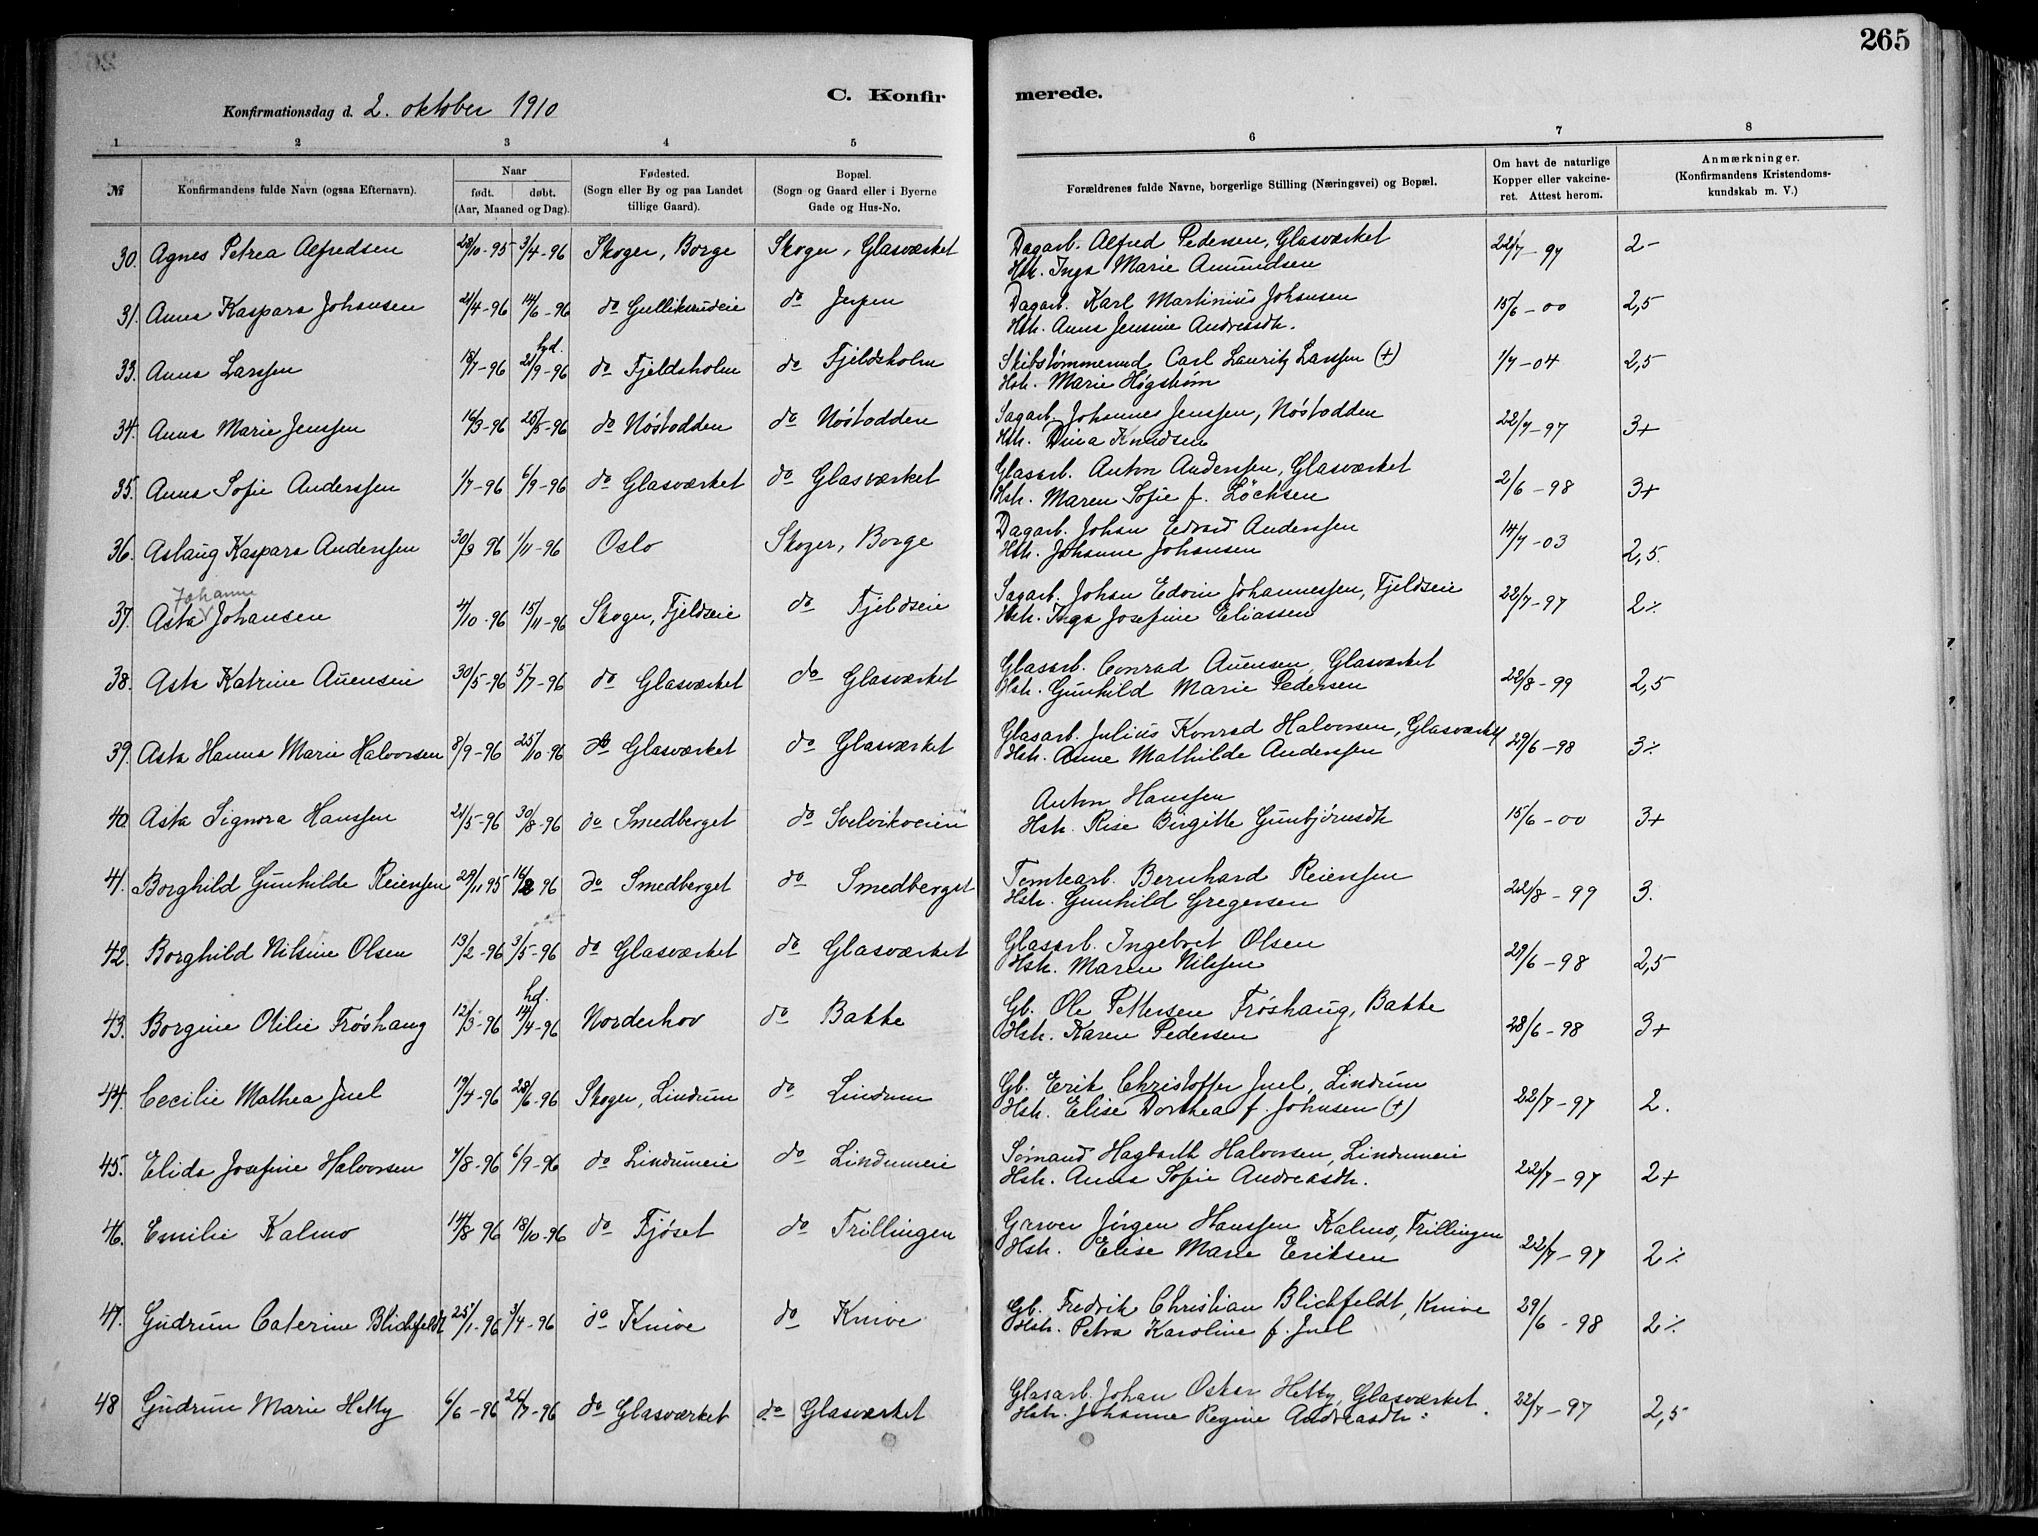 265
C. Konfirmerede.
Konfirmationsdag d. 2. oktober 1910
1 2 3 4 5 6 7 8
№ Konfirmandens fulde Navn (ogsaa Efternavn). Naar født. døbt. (Aar, Maaned og Dag). Fødested. (Sogn eller By og paa Landet tillige Gaard). Bopæl. (Sogn og Gaard eller i Byerne Gade og Hus-No. Forældrenes fulde Navne, borgerlige Stilling (Næringsvei) og Bopæl. Om havt de naturlige Kopper eller vakcineret. Attest herom. Anmærkninger. (Konfirmandens Kristendomskundskab m. V.)
30. Agnes Petrea Alfredsen 28/10-95 3/4-96 Skoger, Borge Skoger, Glasværket Dagarb. Alfred Pedersen, Glasværket 22/7-97 2-
Hstr. Inga Marie Amundsen
31. Anna Kaspara Johansen 21/4-96 14/6-96 do Gulliksrudeie do Jerpen Dagarb. Karl Martinius Johansen 15/6-00 2,5
Hstr. Anna Jensine Andreasdtr.
33. Anna Larssen 18/7-96 hd. 21/9-96 do Fjeldsholm do Fjeldsholm Skibstømmermd Carl Lauritz Larssen (+) 1/7-04 2,5
Hstr. Marie Høgstrøm
34. Anna Marie Jenssen 16/3-96 25/5-96 do Nøstodden do Nøstodden Sagarb. Johannes Jenssen, Nøstodden 22/7-97 3+
Hstr. Dina Knudsen
35. Anna Sofie Anderssen 1/7-96 6/9-96 do Glasværket do Glasværket Glasarb. Anton Anderssen, Glasværket 2/6-98 3+
Hstr. Maren Sofie f. Löchsen
36. Aslaug Kaspara Anderssen 30/9 96 1/11-96 Oslo Skoger, Borge Dagarb. Johan Edvard Anderssen 14/7-03 2,5.
Hstr. Johanne Johansen
37. Asta Johanne Johansen 4/10-96 15/11-96 Skoger, Fjeldseie do Fjeldseie Sagarb. Johan Edvin Johannessen, Fjeldseie 22/7-97 2%
Hstr. Inga Josefine Eliassen
38. Asta Katrine Auensen 30/5-96 5/7-96 do Glasværket do Glasværket Glasarb. Conrad Auensen, Glasværket 22/8-99 2,5
Hstr. Gunhild Marie Pedersen
39. Asta Hanna Marie Halvorsen 8/9-96 25/10-96 do Glasværket do Glasværket Glasarb. Julius Konrad Halvorsen, Glasværket 29/6-98 3%
Hstr. Anne Mathilde Anderssen
40. Asta Signora Hanssen 21/5-96 30/8-96 do Smedberget do Svelvikveien Anton Hanssen 15/6-00 3+
Hstr. Rise Birgitte Gunbjörnsdtr
41. Borghild Gunhilde Reierssen 29/11 95 16/2 96 do Smedberget do Smedberget Tomtearb. Bernhard Reierssen 22/8-99 3.
Hstr. Gunhild Gregersen
42. Borghild Nilsine Olsen 13/2-96 3/5-96 do Glasværket do Glasværket Glasarb. Ingebret Olsen 29/6-98 2,5
Hstr. Maren Nilssen
43. Borgine Otilie Frøshaug 12/3-96 hd. 14/4-96 Norderhov do Bakke Gb. Ole Pettersen Frøshaug, Bakke 28/6-98 3+
Hstr. Karen Pedersen
44. Cecilie Mathea Juel 19/4-96 28/6-96 Skoger, Lindrum do Lindrum Gb. Erik Christoffer Juel, Lindrum 22/7-97 2.
Hstr. Elise Dorthea f. Johnsen (+)
45. Elida Josefine Halvorsen 1/8-96 6/9-96 do Lindrumeie do Lindrumeie Sømand Hagbarth Halvorsen, Lindrumeie 22/7-97 2+
Hstr. Anna Sofie Andreasdtr.
46. Emilie Kalmo 14/8 96 18/10-96 do Fjøset do Trillingen Garver Jørgen Hanssen Kalmo, Trillingen 22/7-97 2%
Hstr. Elise Marie Eriksen
47. Gudrun Caterine Blichfeldt 25/1-96 3/4-96 do Knive do Knive Gb. Fredrik Christian Blichfeldt, Knive 29/6-98 2%
Hstr. Petra Karoline f. Juel
48 Gudrun Marie Hetty 6/6-96 26/7-96 do Glasværket do Glasværket Glasarb. Johan Oskar Hetty, Glasværket 22/7-97 2,5
Hstr. Johanne Regine Andreasdtr.